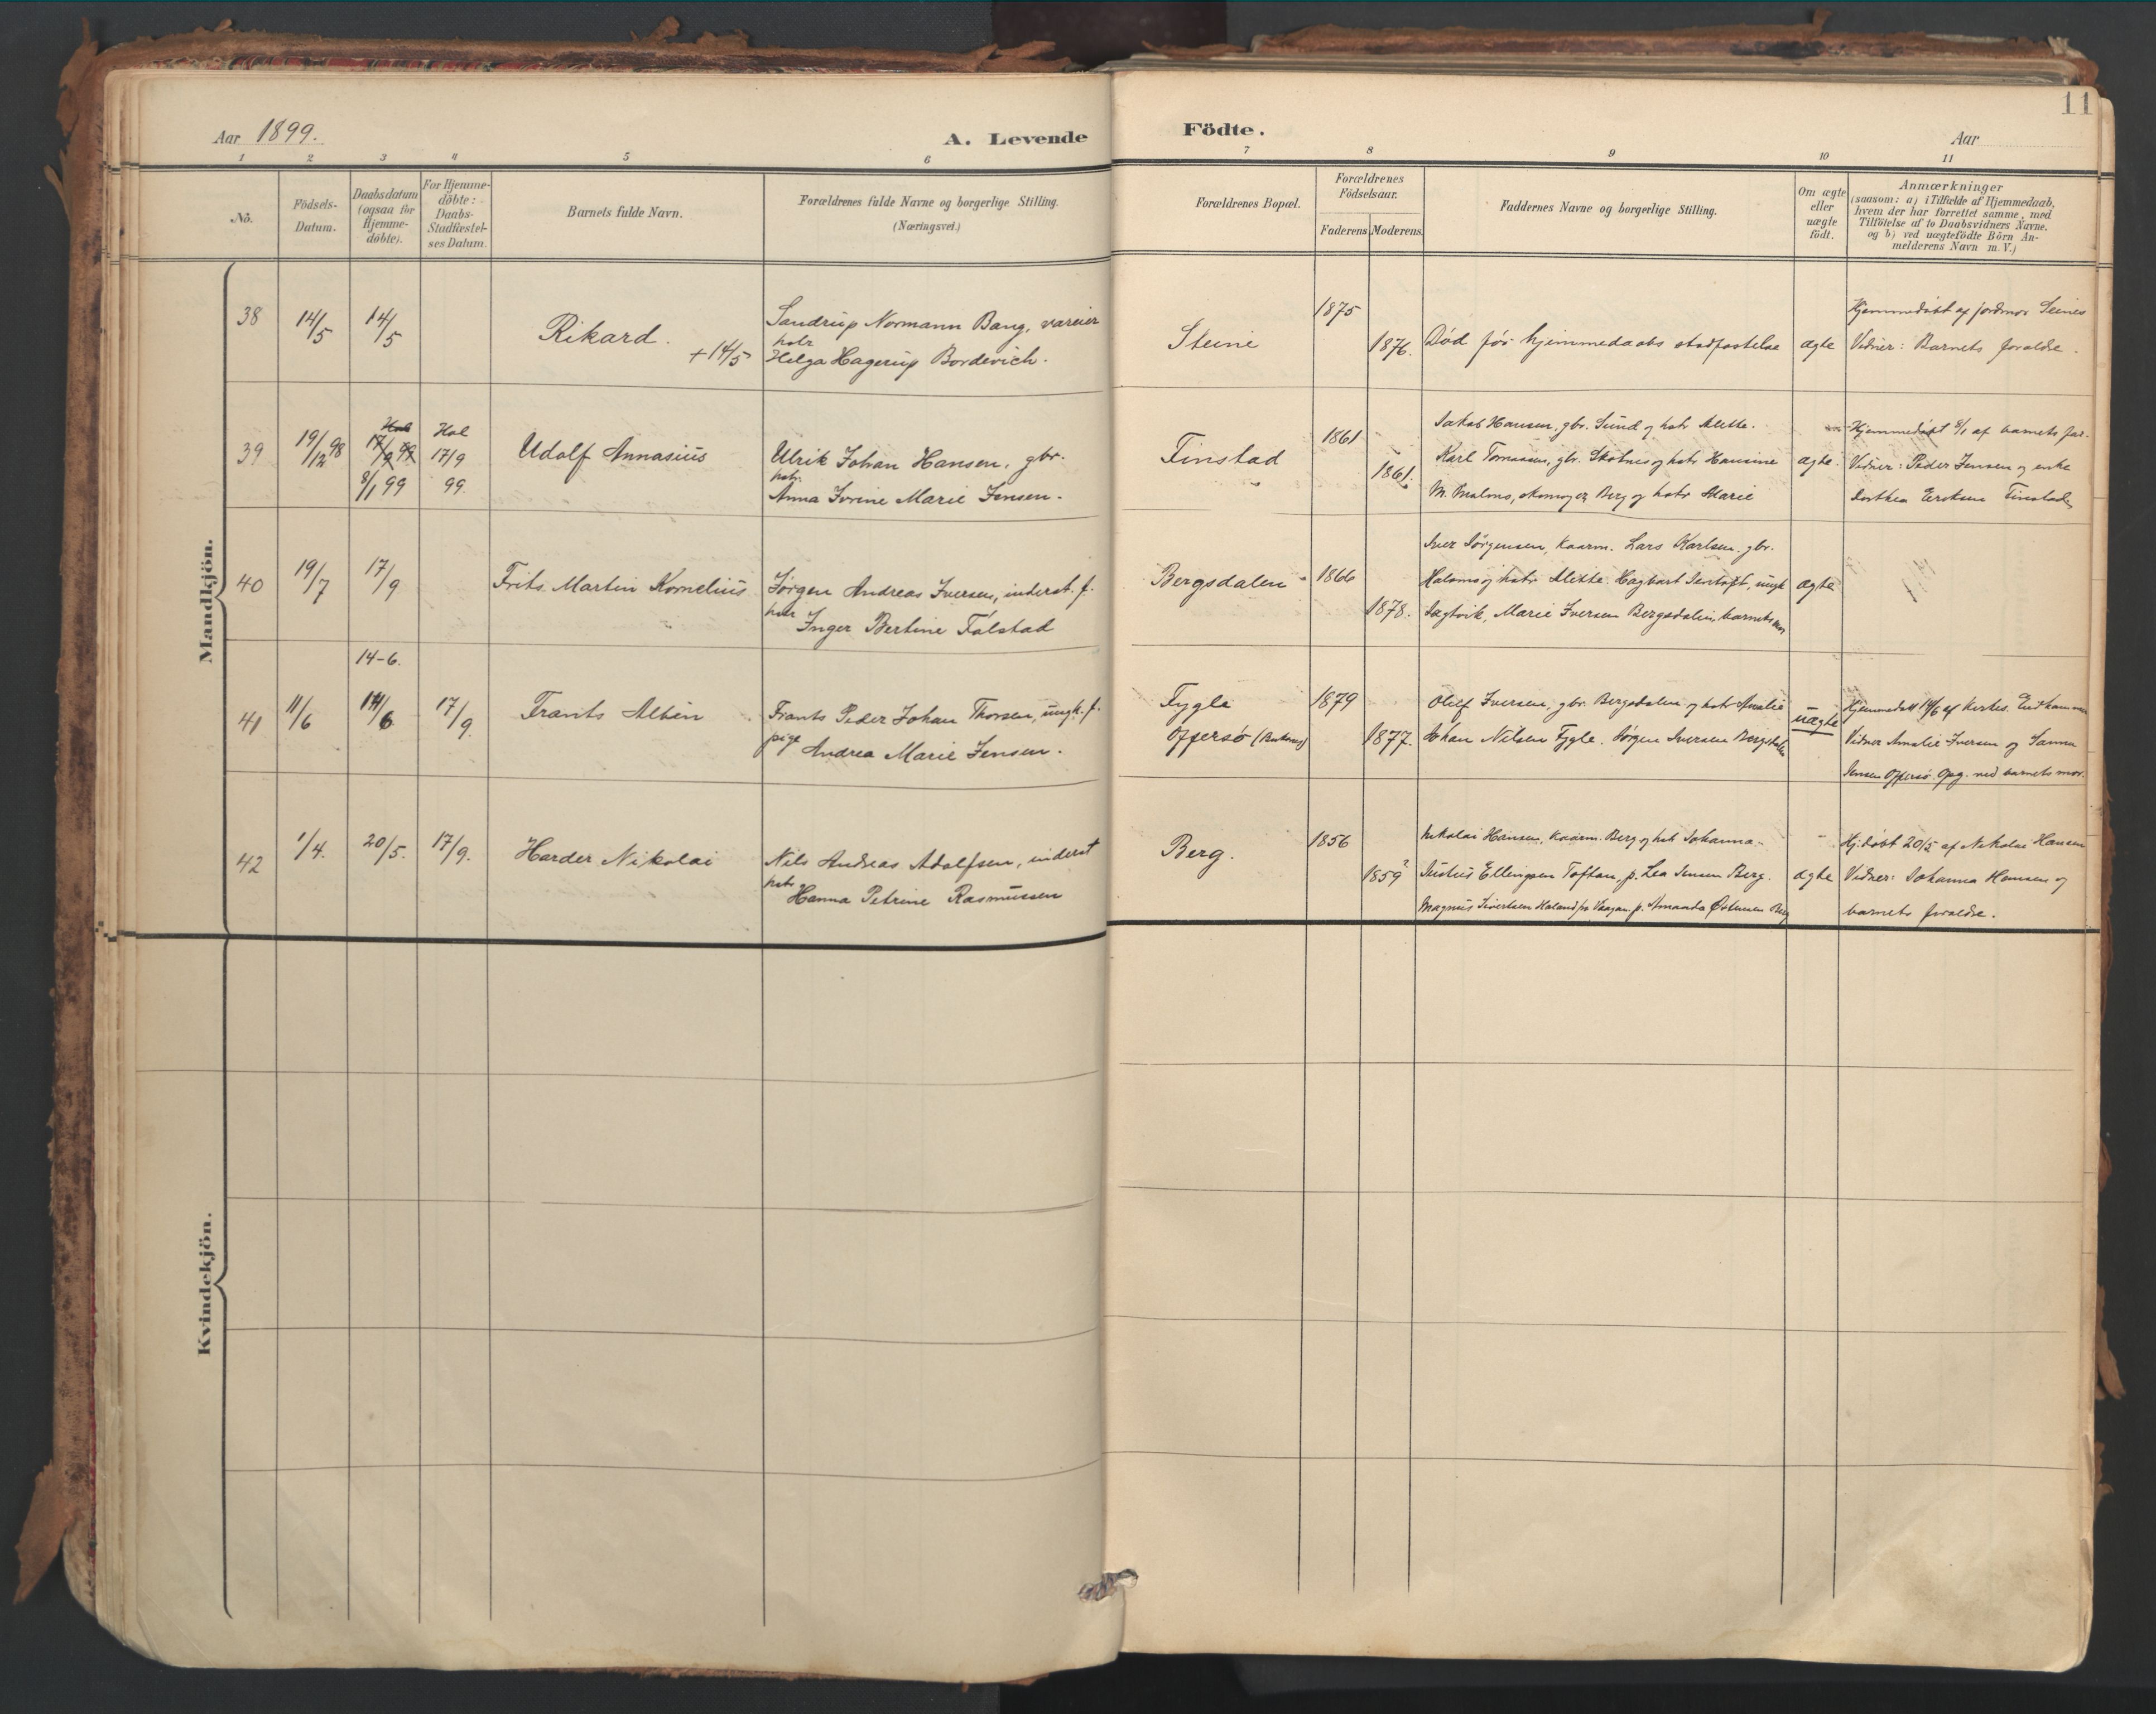 Aar 1899.
A. Levende
Födte.
Aar
11
1 2 3 4 5 6 7 8 9 10 11
No.
Födsels-
Datum.
Daabsdatum
(ogsaa for
Hjemme-
døbte).
For Hjemme-
døbte:
Daabs-
Stadfæstel-
ses Datum.
Barnets fulde Navn.
Forældrenes fulde Navne og borgerlige Stilling.
(Næringsvei.)
Forældrenes Bopæl.
Forældrenes
Födselsaar.
Faderens
Moderens.
Faddernes Navne og borgerlige Stilling.
Om ægte
eller
uægte
födt.
Anmærkninger
(saasom: a) i Tilfælde af Hjemmedaab,
hvem der har forrettet samme, med
Tilföielse af to Daabsvidners Navne.
og b) ved uægtefödte Börn An-
melderens Navn m. V.)
Mandkjön.
38
14/5
14/5
Rikard.
+14/5
Sandrup Normann Bang, vareier
hstr
Helga Hagerup Bordevich.
Steine
1875
1876.
Død før hjemmedaabs stadfæstelse
ægte
Hjemmedøbt af jordmor Steines
Vidner: Barnets forældre.
39
19/12 98
Hol
17/9 99
8/1 99
Hol
17/9
99.
Udolf Annasius
Ulrik Johan Hansen, gbr.
hstr.
Anna Ivrine Marie Jensen.
Finstad
1861
1861.
Jakob Hansen, gbr. Sund og hstr Alette.
Karl Tomassen, gbr. Skotnes og hstr Hansine
M. Malms, skomager, Berg og hstr Marie
ægte.
Hjemmedøbt 8/1 af barnets far.
Vidner: Peder Jensen og enke
Dorthea Eriksen Finstad
40
19/7
17/9
Frits Martin Kornelius
Jørgen Andreas Iversen, inderst. f.
hstr
Inger Bertine Falstad
Bergsdalen
1866
1878.
Iver Jørgensen, kaarm. Lars Karlsen, gbr.
og hstr Alette. Hagbart ungk
Marie Iversen Bergsdalen, barnets mor
ægte
41
11/6
14-6.
14/6
17/9.
Frants Albin
Frants Peder Johan Thorsen, ungk. f.
pige
Andrea Marie Jensen.
Fygle
Offersø (Buksnes)
1879
1877.
Oluf Iversen, gbr. Bergsdalen og hstr Amalie
Johan Nilsen Fygle. Jørgen Iversen Bergsdalen
uægte
Hjemmedøbt 14/6 af
Vidner Amalie Iversen og Sanna
Jensen Offersø. Opg. ved barnets mor.
42
1/4.
20/5.
17/9.
Harder Nikolai
Nils Andreas Adolfsen, inderst
hstr
Hanna Petrine Rasmussen
Berg.
1856
1859?
Nikolai Hansen, kaarm. Berg og hstr Johanna.
Justus Ellingsen Toftan, p. Lea Jensen Berg.
Magnus Sivertsen Holand pr Vaagan. p. Amanda Østensen Berg
ægte
Hj. døbt 20/5 af Nikolai Hansen
Vidner: Johanna Hansen og
barnets forældre.
Kvindekjön.